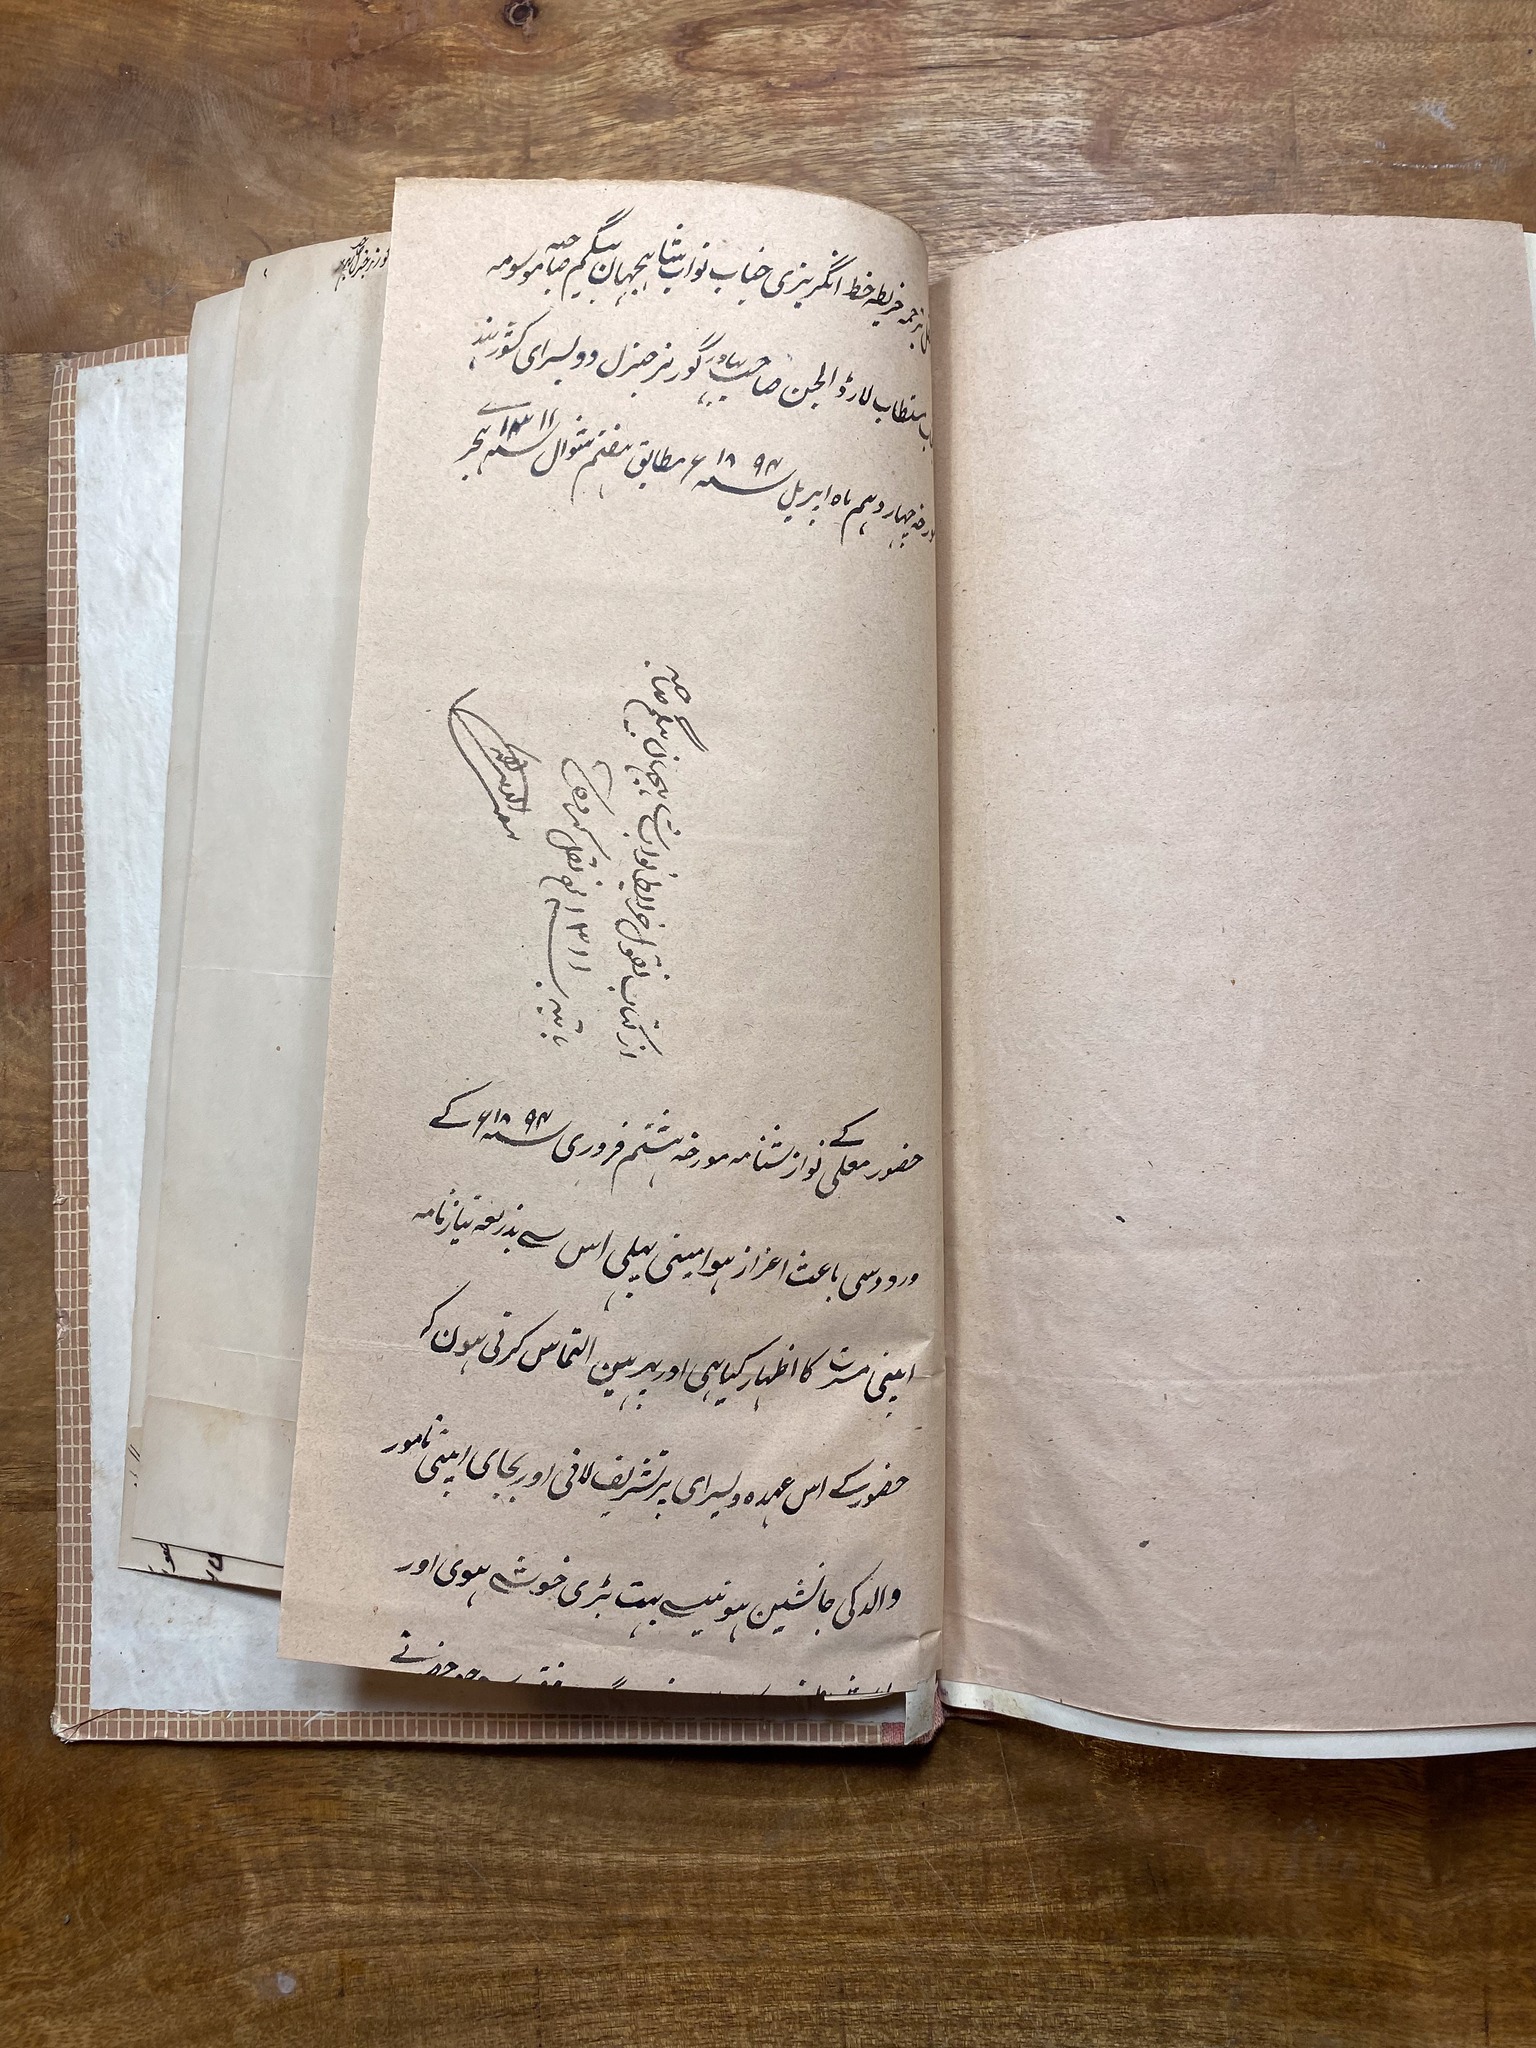 ترجمہ خریطہ خط انگریزی جناب نواب شاہجہان بیگم صاحبہ موسومہ
مستطاب لارڈ الجن صاحب بہادر گورنر جنرل وویسرای کشور ہند
مورخہ چہاردہم ماہ اپریل سنہ ۱۸۹۴ء مطابق ہفتم شوال سنہ ۱۳۱۱ ہجرے
از کتاب نقول خرایط نواب شاہجہان بیگم صاحبہ
بابتہ سنہ ۱۳۱۱ نقل کردہ شد
حضور معلی کے نوازشنامہ مورخہ ہشتم فروری سنہ ۱۸۹۴ء کے
ورود سی باعث اعزاز ہوا مینی پہلی اس سے بذریعہ نیازنامہ
اپنی مسرت کا اظہار کیا ہی اور پہر بہی التماس کرتی ہون کہ
حضور کے اس عہدہ ویسرای پر تشریف لانی اور بجای اپنی نامور
والد کی جانشین ہونیسے بہت بڑی خوشے ہوی اور